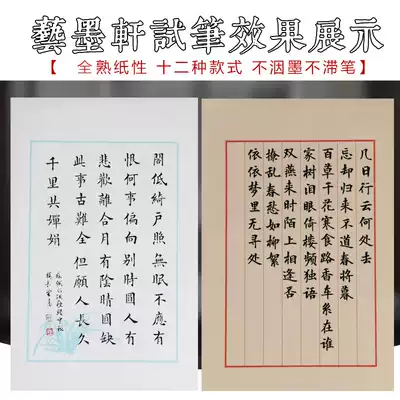 藝墨軒試筆效果展示
【 全熟纸性 十二种款式 不洇墨不滞笔】
閣低綺戶照無眠不應有
恨何事偏向別時圓人有
悲歡離合月有陰晴圓缺
此事古難全但願人長久
千里共嬋娟
几日行云何处去
忘却归来不道春将暮
百草千花寒食路香车系在谁
家树泪眼倚楼频独语
双燕来时陌上相逢否
撩乱春愁如柳絮
依依梦里无寻处